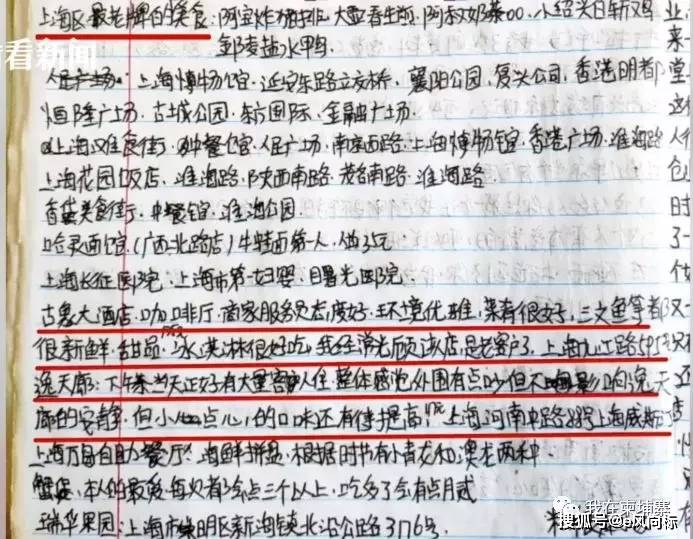 看看新闻
上海区最老牌的美食:阿宝炸猪排、大壶春生煎、阿叔奶茶00、小绍兴白斩鸡
盐水鸭
人民广场、上海博物馆、延安东路立交桥、襄阳公园、复兴公司、香港明都
恒隆广场、古城公园、东方国际、金融广场
上海美食街、中餐馆、人民广场、南京西路、上海博物馆、香港广场、淮海路
上海花园饭店、淮海路、陕西南路、茂名南路、淮海路
美食街、中餐馆、淮海公园
哈灵面馆(广西北路店)牛蛙面第一人
上海长征医院、上海市第一妇婴、曙光医院
古象大酒店、咖啡厅、商家服务态度好、环境优雅、菜肴很好、三文鱼等都
很新鲜、甜品、冰淇淋很好吃,我经常光顾该店,是老客户了、上海九江路595号
逸天廊:下午茶当天正好有大量客人入住、整体感觉外围有点吵但不影响逸天
廊的安静、但小点心的口味还有待提高,上海河南中路
上海万自助餐厅、海鲜拼盘、根据时节有小青龙和澳龙两种
蟹,本人的最爱每次都会点三个以上,吃多了会有点月贰
瑞华果园:上海市崇明区新海镇北沿公路3176号
我在柬埔寨
搜狐号@b风向标